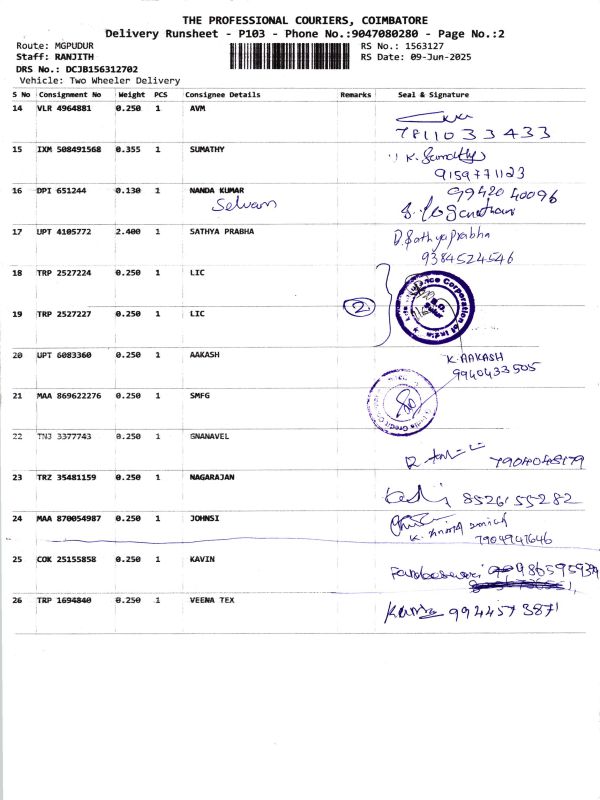 THE PROFESSIONAL COURIERS, COIMBATORE
Delivery Runsheet - P103 - Phone No.:9047080280 - Page No.:2
Route: MGPUDUR RS No.: 1563127
Staff: RANJITH RS Date: 09-Jun-2025
DRS No.: DCJB156312702
Vehicle: Two Wheeler Delivery
S No Consignment No Weight PCS Consignee Details Remarks Seal & Signature
14 VLR 4964881 0.250 1 AVM
7811033433
15 IXM 508491568 0.355 1 SUMATHY
K. Sumathy
9159771123
16 DPI 651244 0.130 1 NANDA KUMAR 99420 40096
Selvam
17 UPT 4105772 2.400 1 SATHYA PRABHA D. Sathya Prabha
9384524546
18 TRP 2527224 0.250 1 LIC
2
19 TRP 2527227 0.250 1 LIC
20 UPT 6083360 0.250 1 AAKASH K. AAKASH
9940433505
21 MAA 869622276 0.250 1 SMFG
22 TNJ 3377743 0.250 1 GNANAVEL
23 TRZ 35481159 0.250 1 NAGARAJAN
8526155282
24 MAA 870054987 0.250 1 JOHNSI
7904941646
25 COK 25155858 0.250 1 KAVIN
26 TRP 1694840 0.250 1 VEENA TEX
9944573871